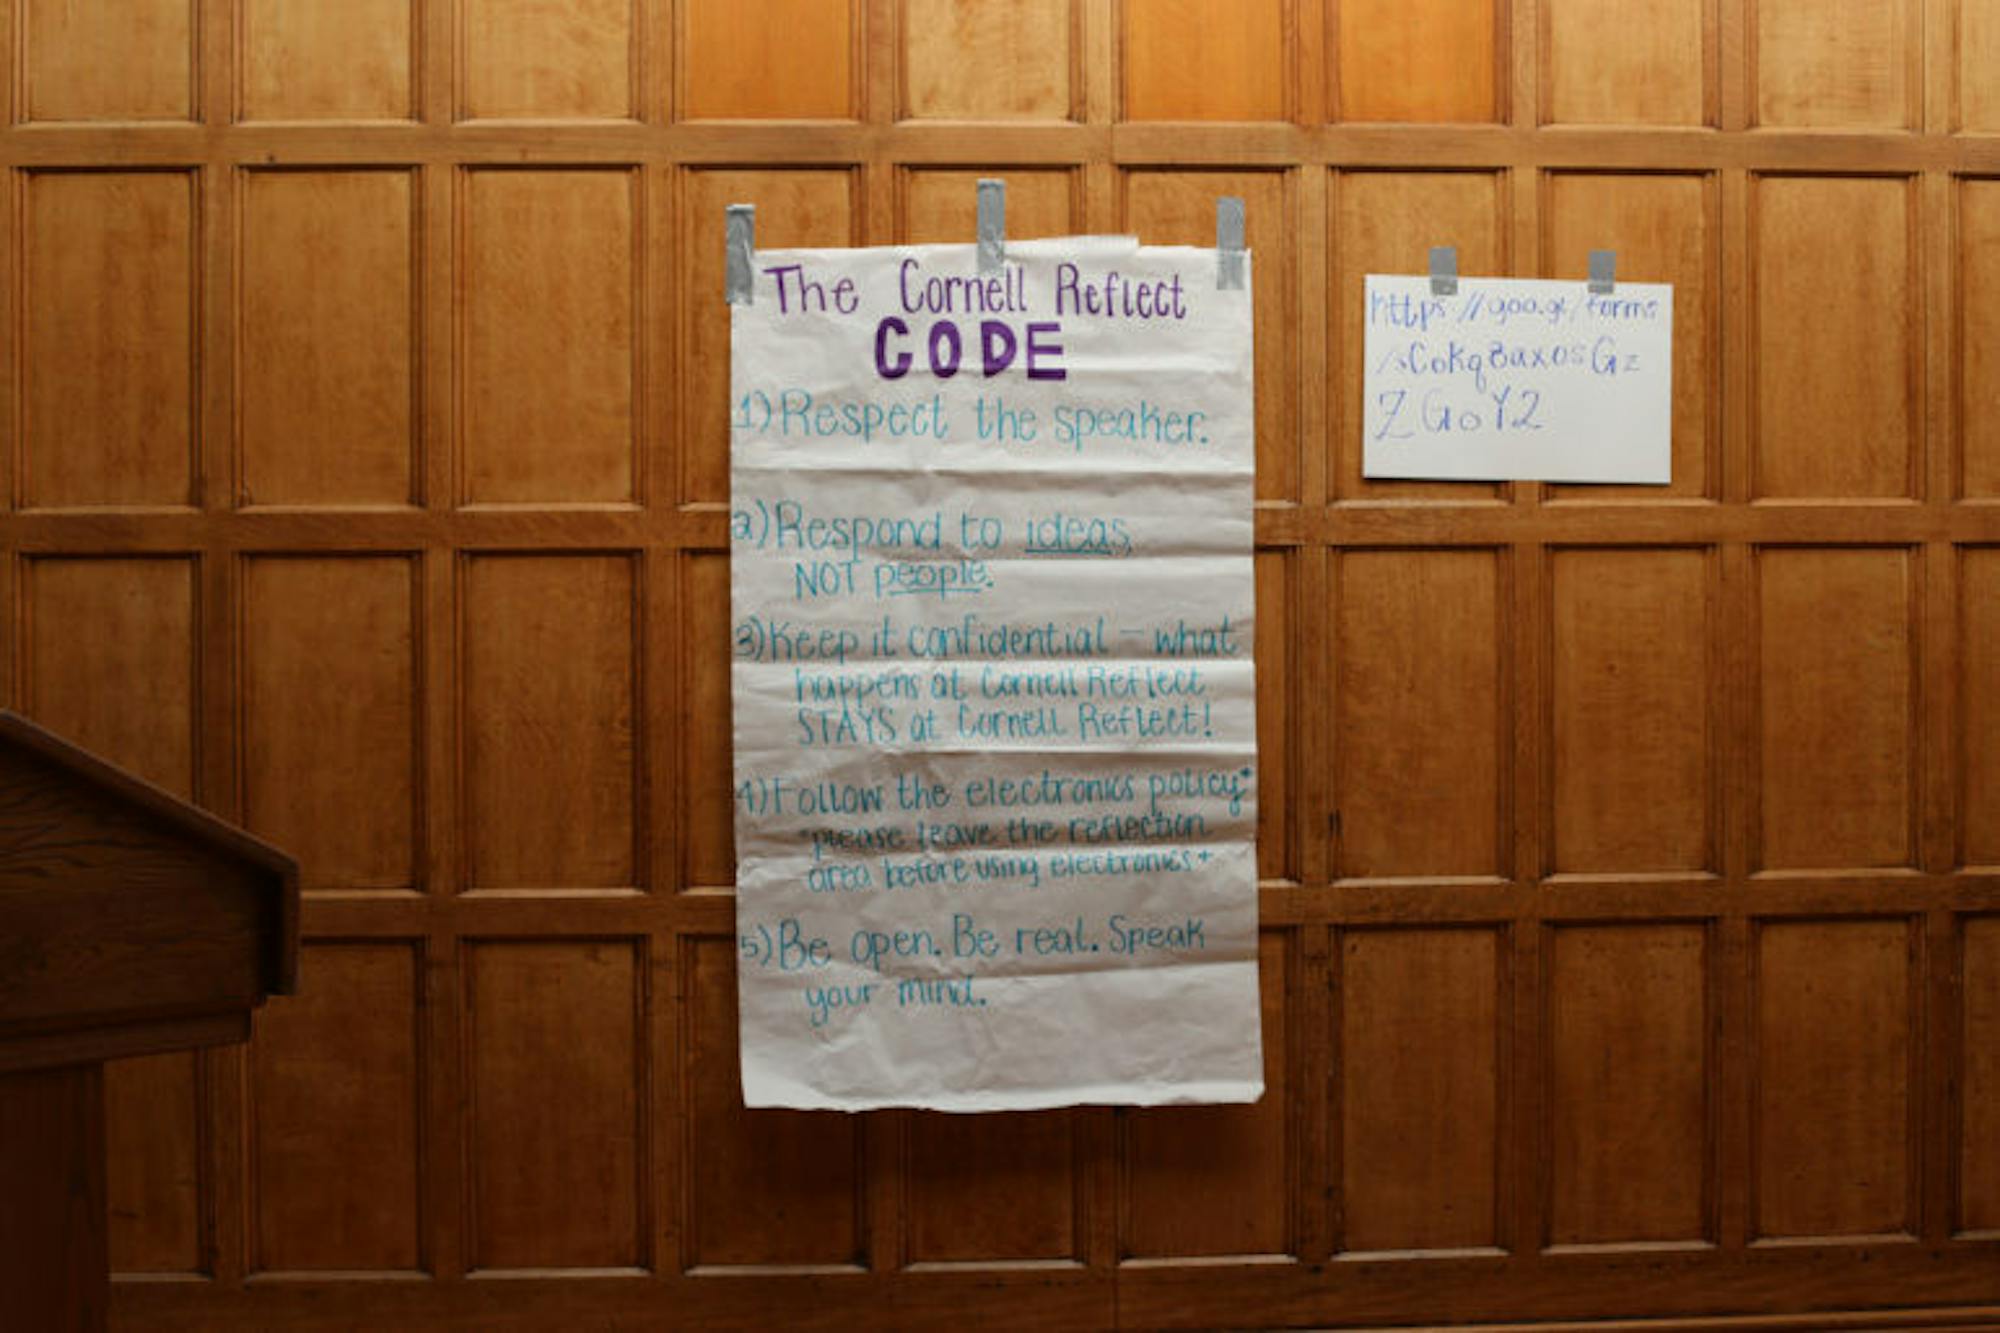 The Cornell Reflect
CODE
1) Respect the speaker.
2) Respond to ideas,
NOT people.
3) Keep it confidential - what
happens at Cornell Reflect
STAYS at Cornell Reflect!
4) Follow the electronics policy*
*please leave the reflection
area before using electronics*
5) Be open. Be real. Speak
your mind.
https://goo.gl/forms
/sCoKq8axosGz
ZGoY2